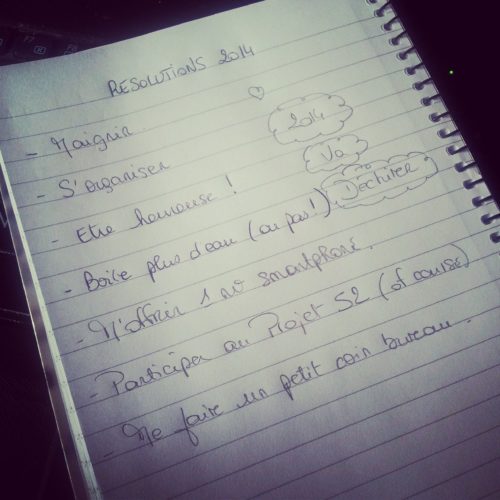 RESOLUTIONS 2014
- Maigrir
- S'organiser
- Etre heureuse !
- Boire plus d'eau (ou pas !)
- M'offrir 1 no smartphone.
- Participer au Projet 52 (of course)
- Me faire un petit coin bureau.
2014
Va
Déchirer